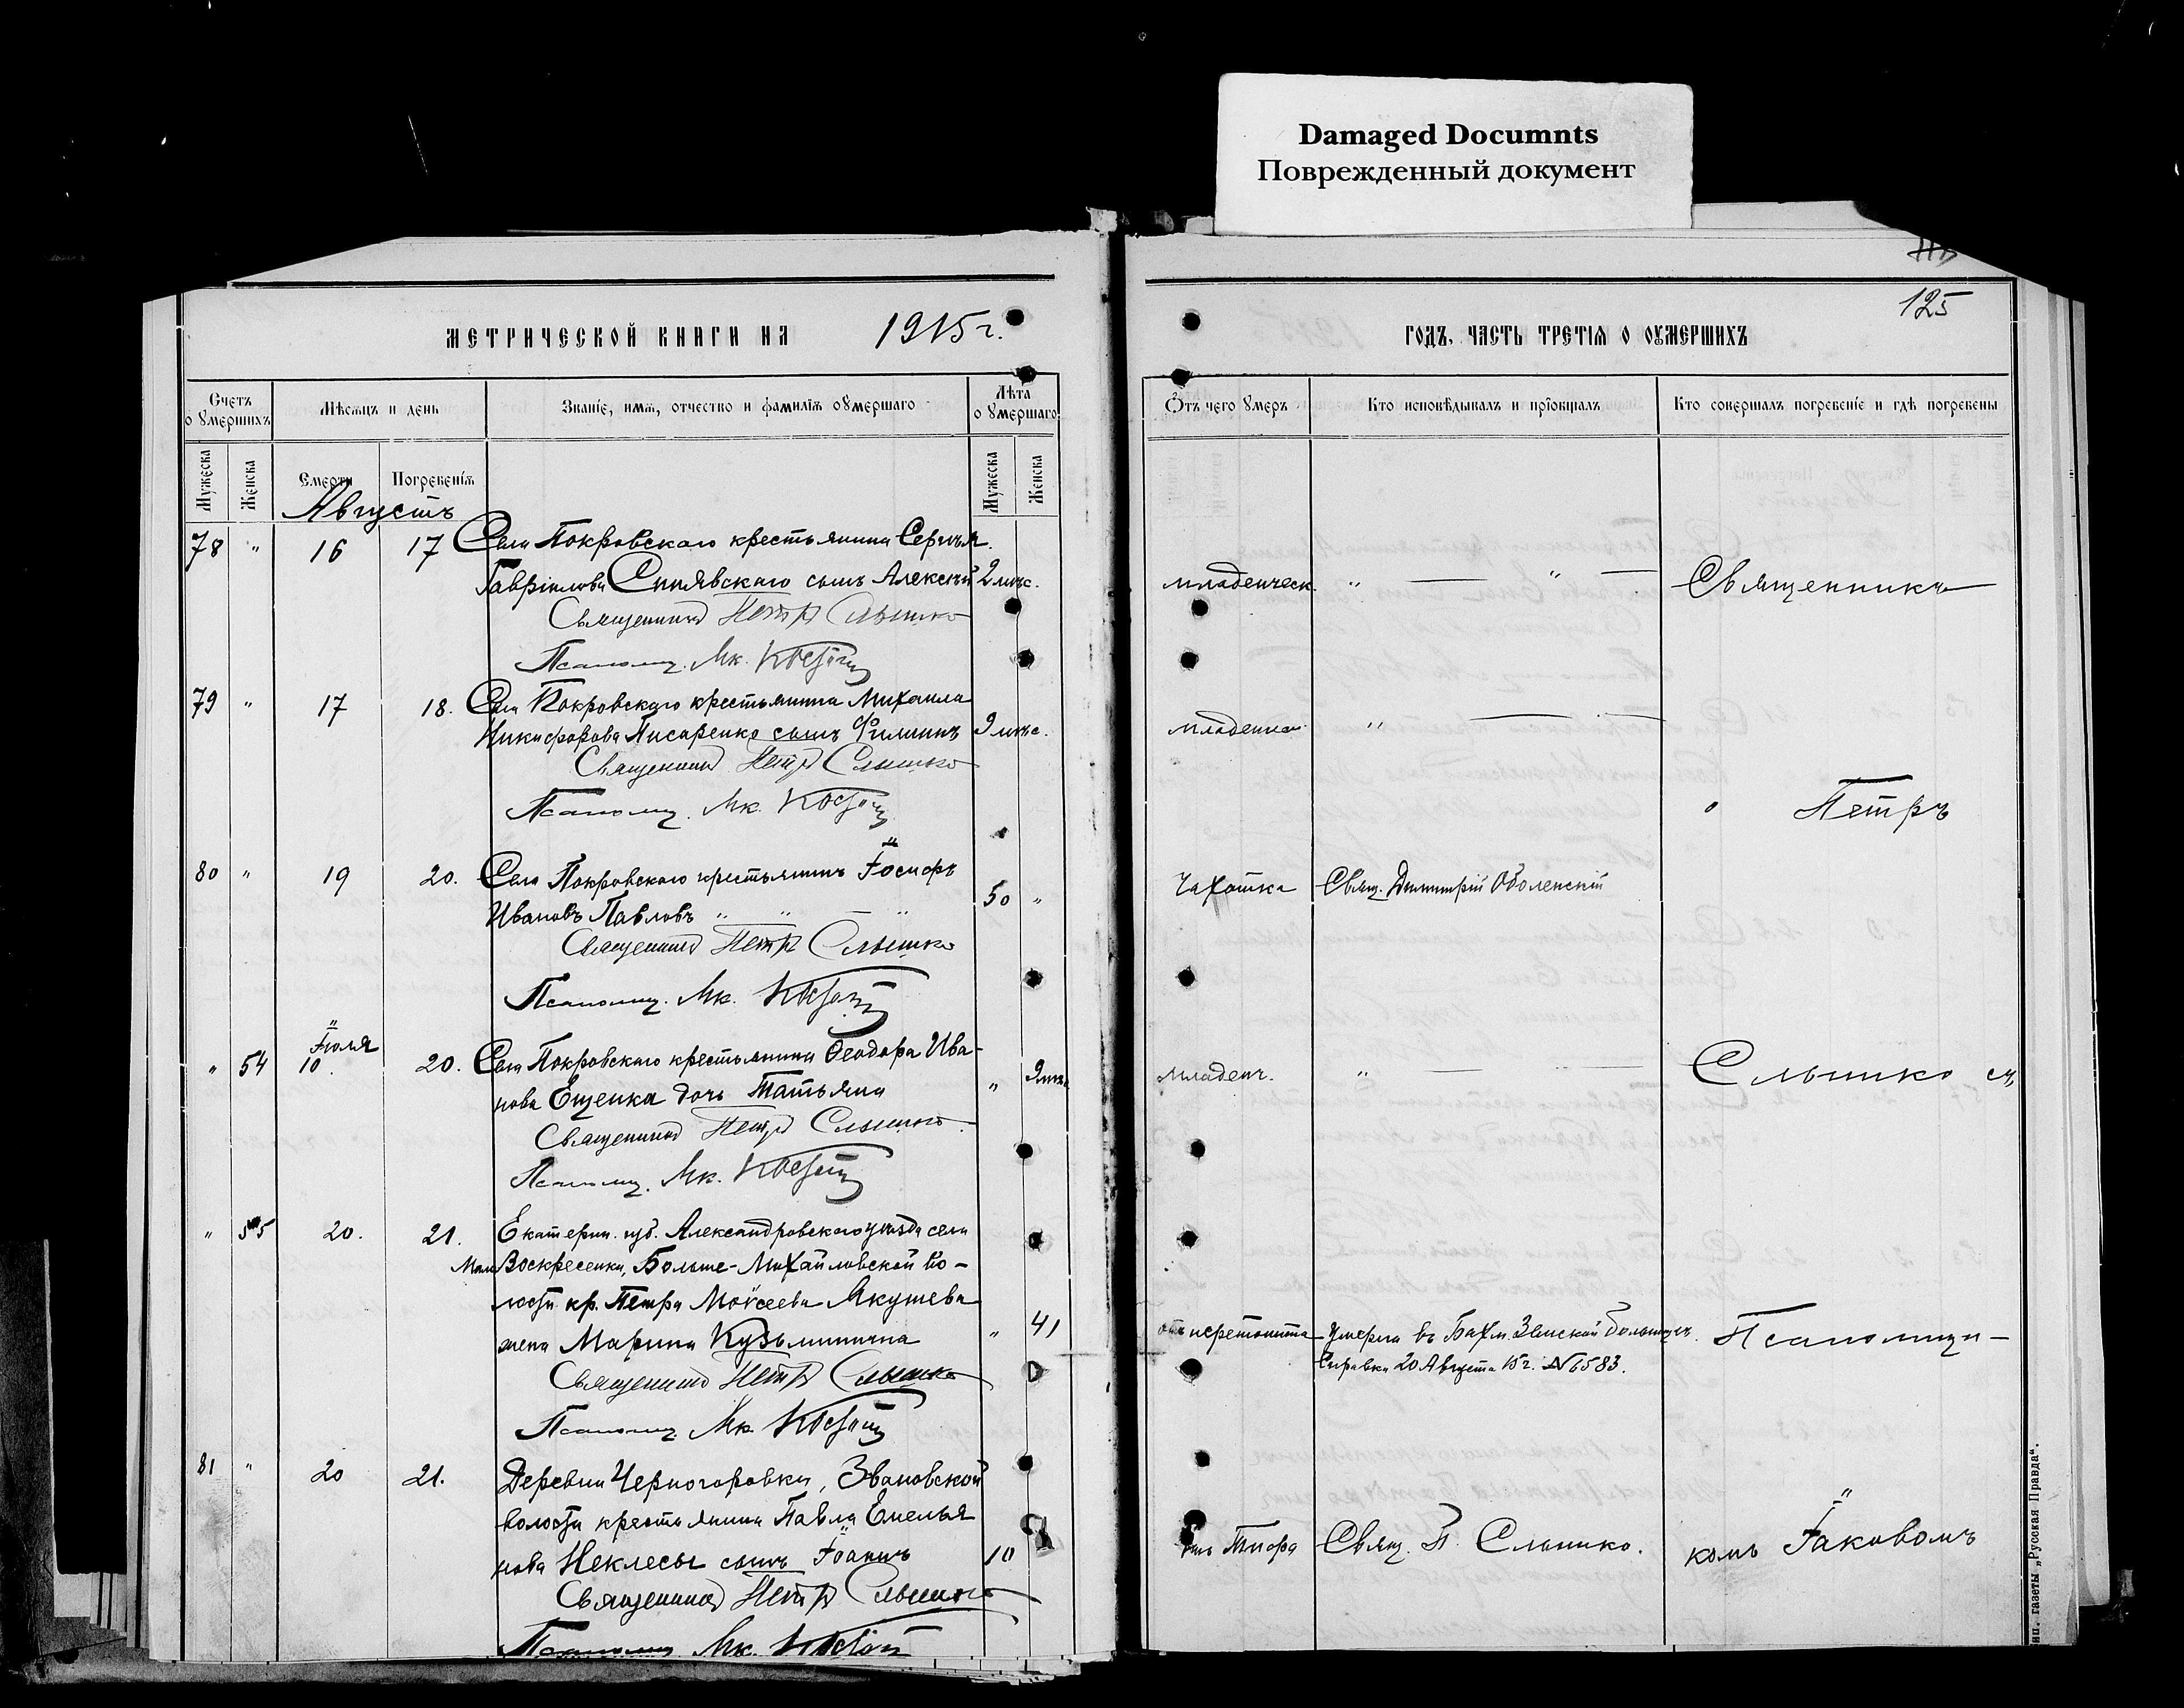 Damaged Documnts
Поврежденный документ
125
МЕТРИЧЕСКОЙ КНИГИ НА 1915 г.
ГОДЪ, ЧАСТЬ ТРЕТІЯ О ОУМЕРШИХЪ
Счетъ о умершихъ
Мѣсяцъ и день
Званіе, имя, отчество и фамилія оумершаго
Лѣта о умершаго
Отъ чего умеръ
Кто исповѣдывалъ и пріобщалъ
Кто совершалъ погребеніе и гдѣ погребены
Мужеска
Женска
Смерти
Погребенія
Мужеска
Женска
Августъ
78 " 16 17 Села Покровскаго крестьянина Сергѣя
Гавріилова Синявскаго сынъ Алексѣй 2 мѣс. младенческ. " " Священникъ
Священникъ Петръ Слышко
Псаломщ. Як.
79 " 17 18. Села Покровскаго крестьянина Михаила
Никифорова Писаренко сынъ Филиппъ 9 мѣс. "
Священникъ Петръ Слышко
Псаломщ. Як.
Петръ
80 " 19 20. Села Покровскаго крестьянинъ Іосифъ
Ивановъ Павловъ " " " 50 " Чахотка Свящ. Димитрій Оболенскій
Священникъ Петръ Слышко
Псаломщ. Як.
Іюля
" 54 10 20. Села Покровскаго крестьянина Ѳеодора Ива-
нова Ещенка дочь Татьяна " 9 мѣс. младенч. " Слышко съ
Священникъ Петръ Слышко
Псаломщ. Як.
" 55 20. 21. Екатерин. губ. Александровскаго уѣзда села
Мало Воскресенки, Больше-Михайловской во-
лости кр. Петра Моѵсеева Якушева
жена Марина Кузьминична " 41 отъ перетонита Умерла въ Бахм. Земской больницѣ.
Справка 20 Августа 15 г. № 6583.
Псаломщи-
Священникъ Петръ Слышко
Псаломщ. Як.
81 " 20 21. Деревни Черногоровки, Звановской
волости крестьянина Павла Емелья
нова Неклесы сынъ Іоаннъ 10 отъ Тифа Свящ. П. Слышко. комъ Іаковомъ
Священникъ Петръ Слышко
Псаломщ. Як.
тип. газеты „Русская Правда“.